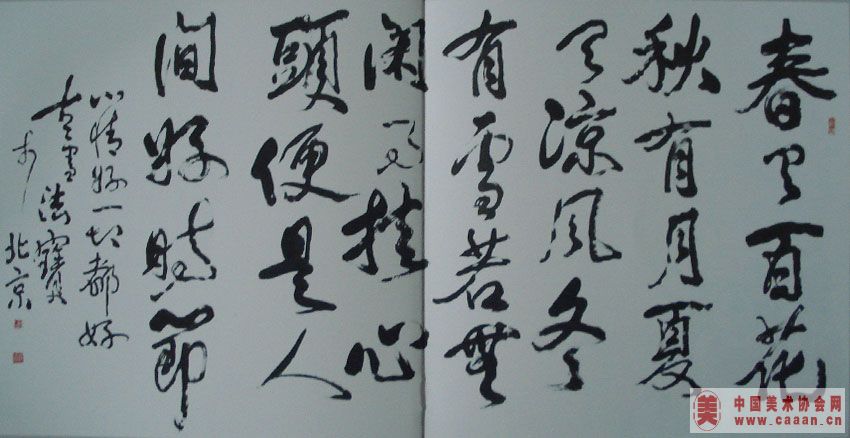 春有百花
秋有月夏
有凉风冬
有雪若無
闲事挂心
頭便是人
间好时節
心情好一切都好
書法寶
北京
美 中国美术协会网
www.caaan.cn